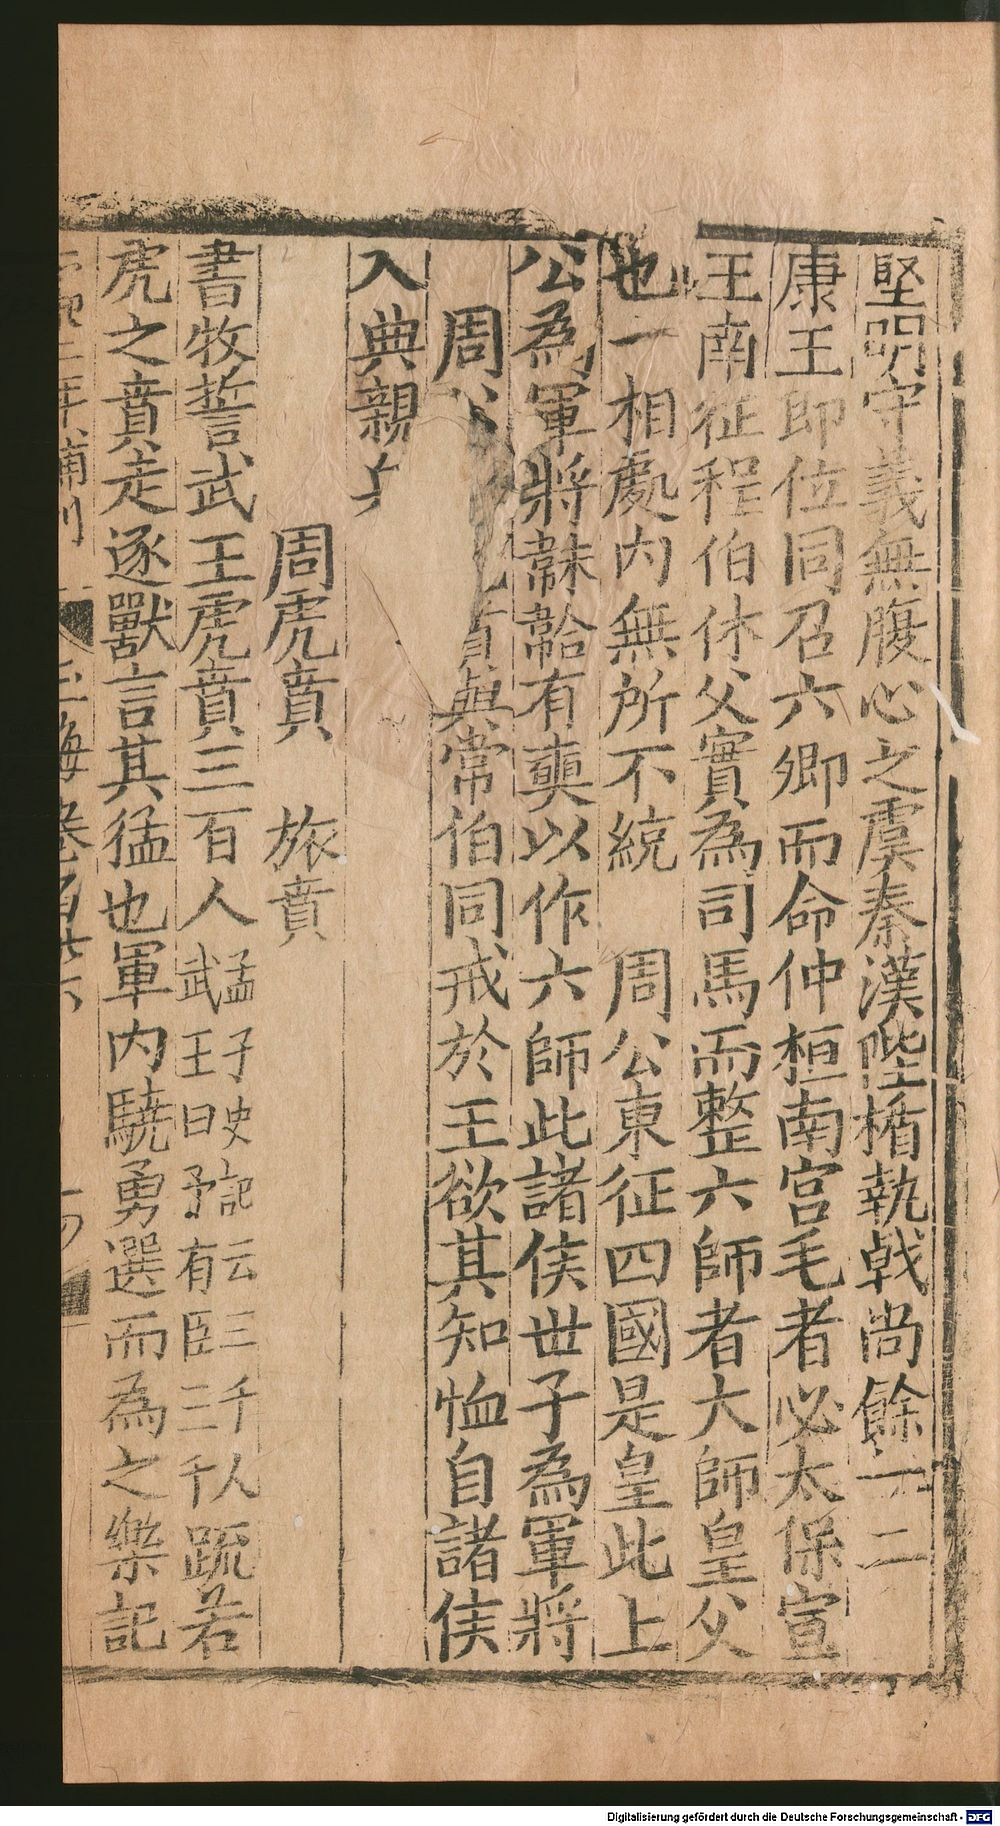 堅明守義無腹心之虞秦漢陛楯執戟尚餘一二
康王即位同召六卿而命仲桓南宮毛者必太保宣
王南征程伯休父實為司馬而整六師者大師皇父
也一相處內無所不統　周公東征四國是皇此上
公為軍將韎韐有奭以作六師此諸侯世子為軍將
周　賁與常伯同戒於王欲其知恤自諸侯
入典親
周虎賁　旅賁
書牧誓武王虎賁三百人孟子史記云三千人武王曰予有臣三千疏若
虎之賁走逐獸言其猛也軍內驍勇選而為之樂記
年補刊　玉海卷百卅六　十四
Digitalisierung gefördert durch die Deutsche Forschungsgemeinschaft - DFG